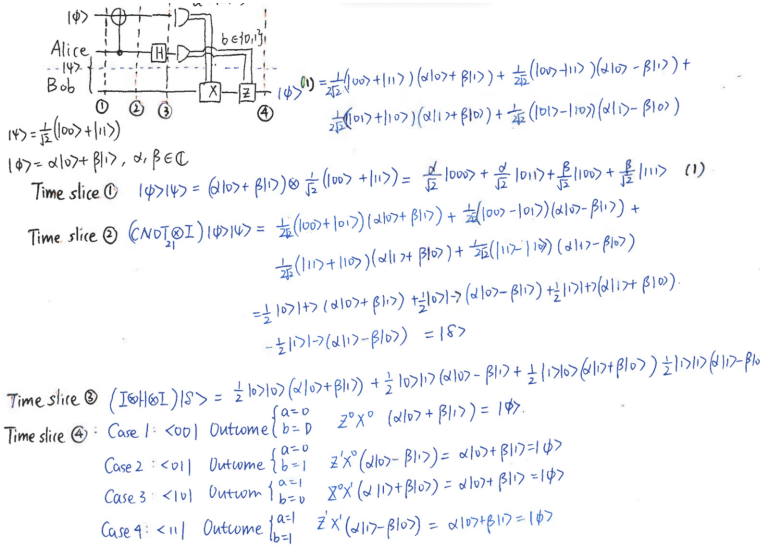 a
|φ>
Alice
b∈{0,1}
H
|ψ>
Bob
X
Z
|φ>
① ② ③ ④
(1) = 1/2√2 (|00>+|11>)(α|0>+β|1>) + 1/2√2 (|00>-|11>)(α|0>-β|1>) +
1/2√2 (|01>+|10>)(α|1>+β|0>) + 1/2√2 (|01>-|10>)(α|1>-β|0>)
|ψ>=1/√2(|00>+|11>)
|φ>=α|0>+β|1>, α,β∈ℂ
Time slice ① |φ>|ψ> = (α|0>+β|1>)⊗ 1/√2 (|00>+|11>) = α/√2 |000> + α/√2 |011> + β/√2 |100> + β/√2 |111> (1)
Time slice ② (CNOT₂₁⊗I)|φ>|ψ> = 1/2√2 (|00>+|01>)(α|0>+β|1>) + 1/2√2 (|00>-|01>)(α|0>-β|1>) +
1/2√2 (|11>+|10>)(α|1>+β|0>) + 1/2√2 (|11>-|10>)(α|1>-β|0>)
= 1/2 |0>|+>(α|0>+β|1>) + 1/2 |0>|->(α|0>-β|1>) + 1/2 |1>|+>(α|1>+β|0>).
- 1/2 |1>|->(α|1>-β|0>) = |δ>
Time slice ③ (I⊗H⊗I)|δ> = 1/2 |0>|0>(α|0>+β|1>) + 1/2 |0>|1>(α|0>-β|1>) + 1/2 |1>|0>(α|1>+β|0>) 1/2 |1>|1>(α|1>-β|0
Time slice ④: Case 1: <00| Outcome { a=0 b=0 Z⁰X⁰ (α|0>+β|1>) = |φ>.
Case 2: <01| Outcome { a=0 b=1 Z¹X⁰(α|0>-β|1>) = α|0>+β|1>=|φ>
Case 3: <10| Outcom { a=1 b=0 Z⁰X¹(α|1>+β|0>) = α|0>+β|1>=|φ>
Case 4: <11| Outcome { a=1 b=1 Z¹X¹(α|1>-β|0>) = α|0>+β|1>=|φ>